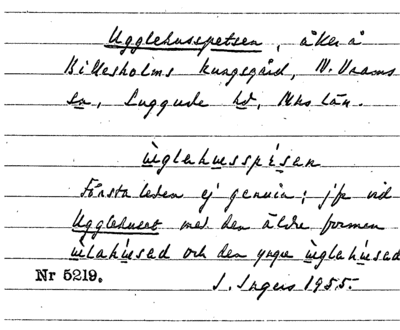 Ugglehusspetsen, åker å
Billesholms kungsgård, N. Vrams
sn, Luggude hd, Mhs län.
ùglahusspésen
Första leden ej genuin; jfr vid
Ugglehuset med den äldre formen
ùlahúsad och den yngre ùglahúsad
Nr 5219.
I. Ingers 1955.